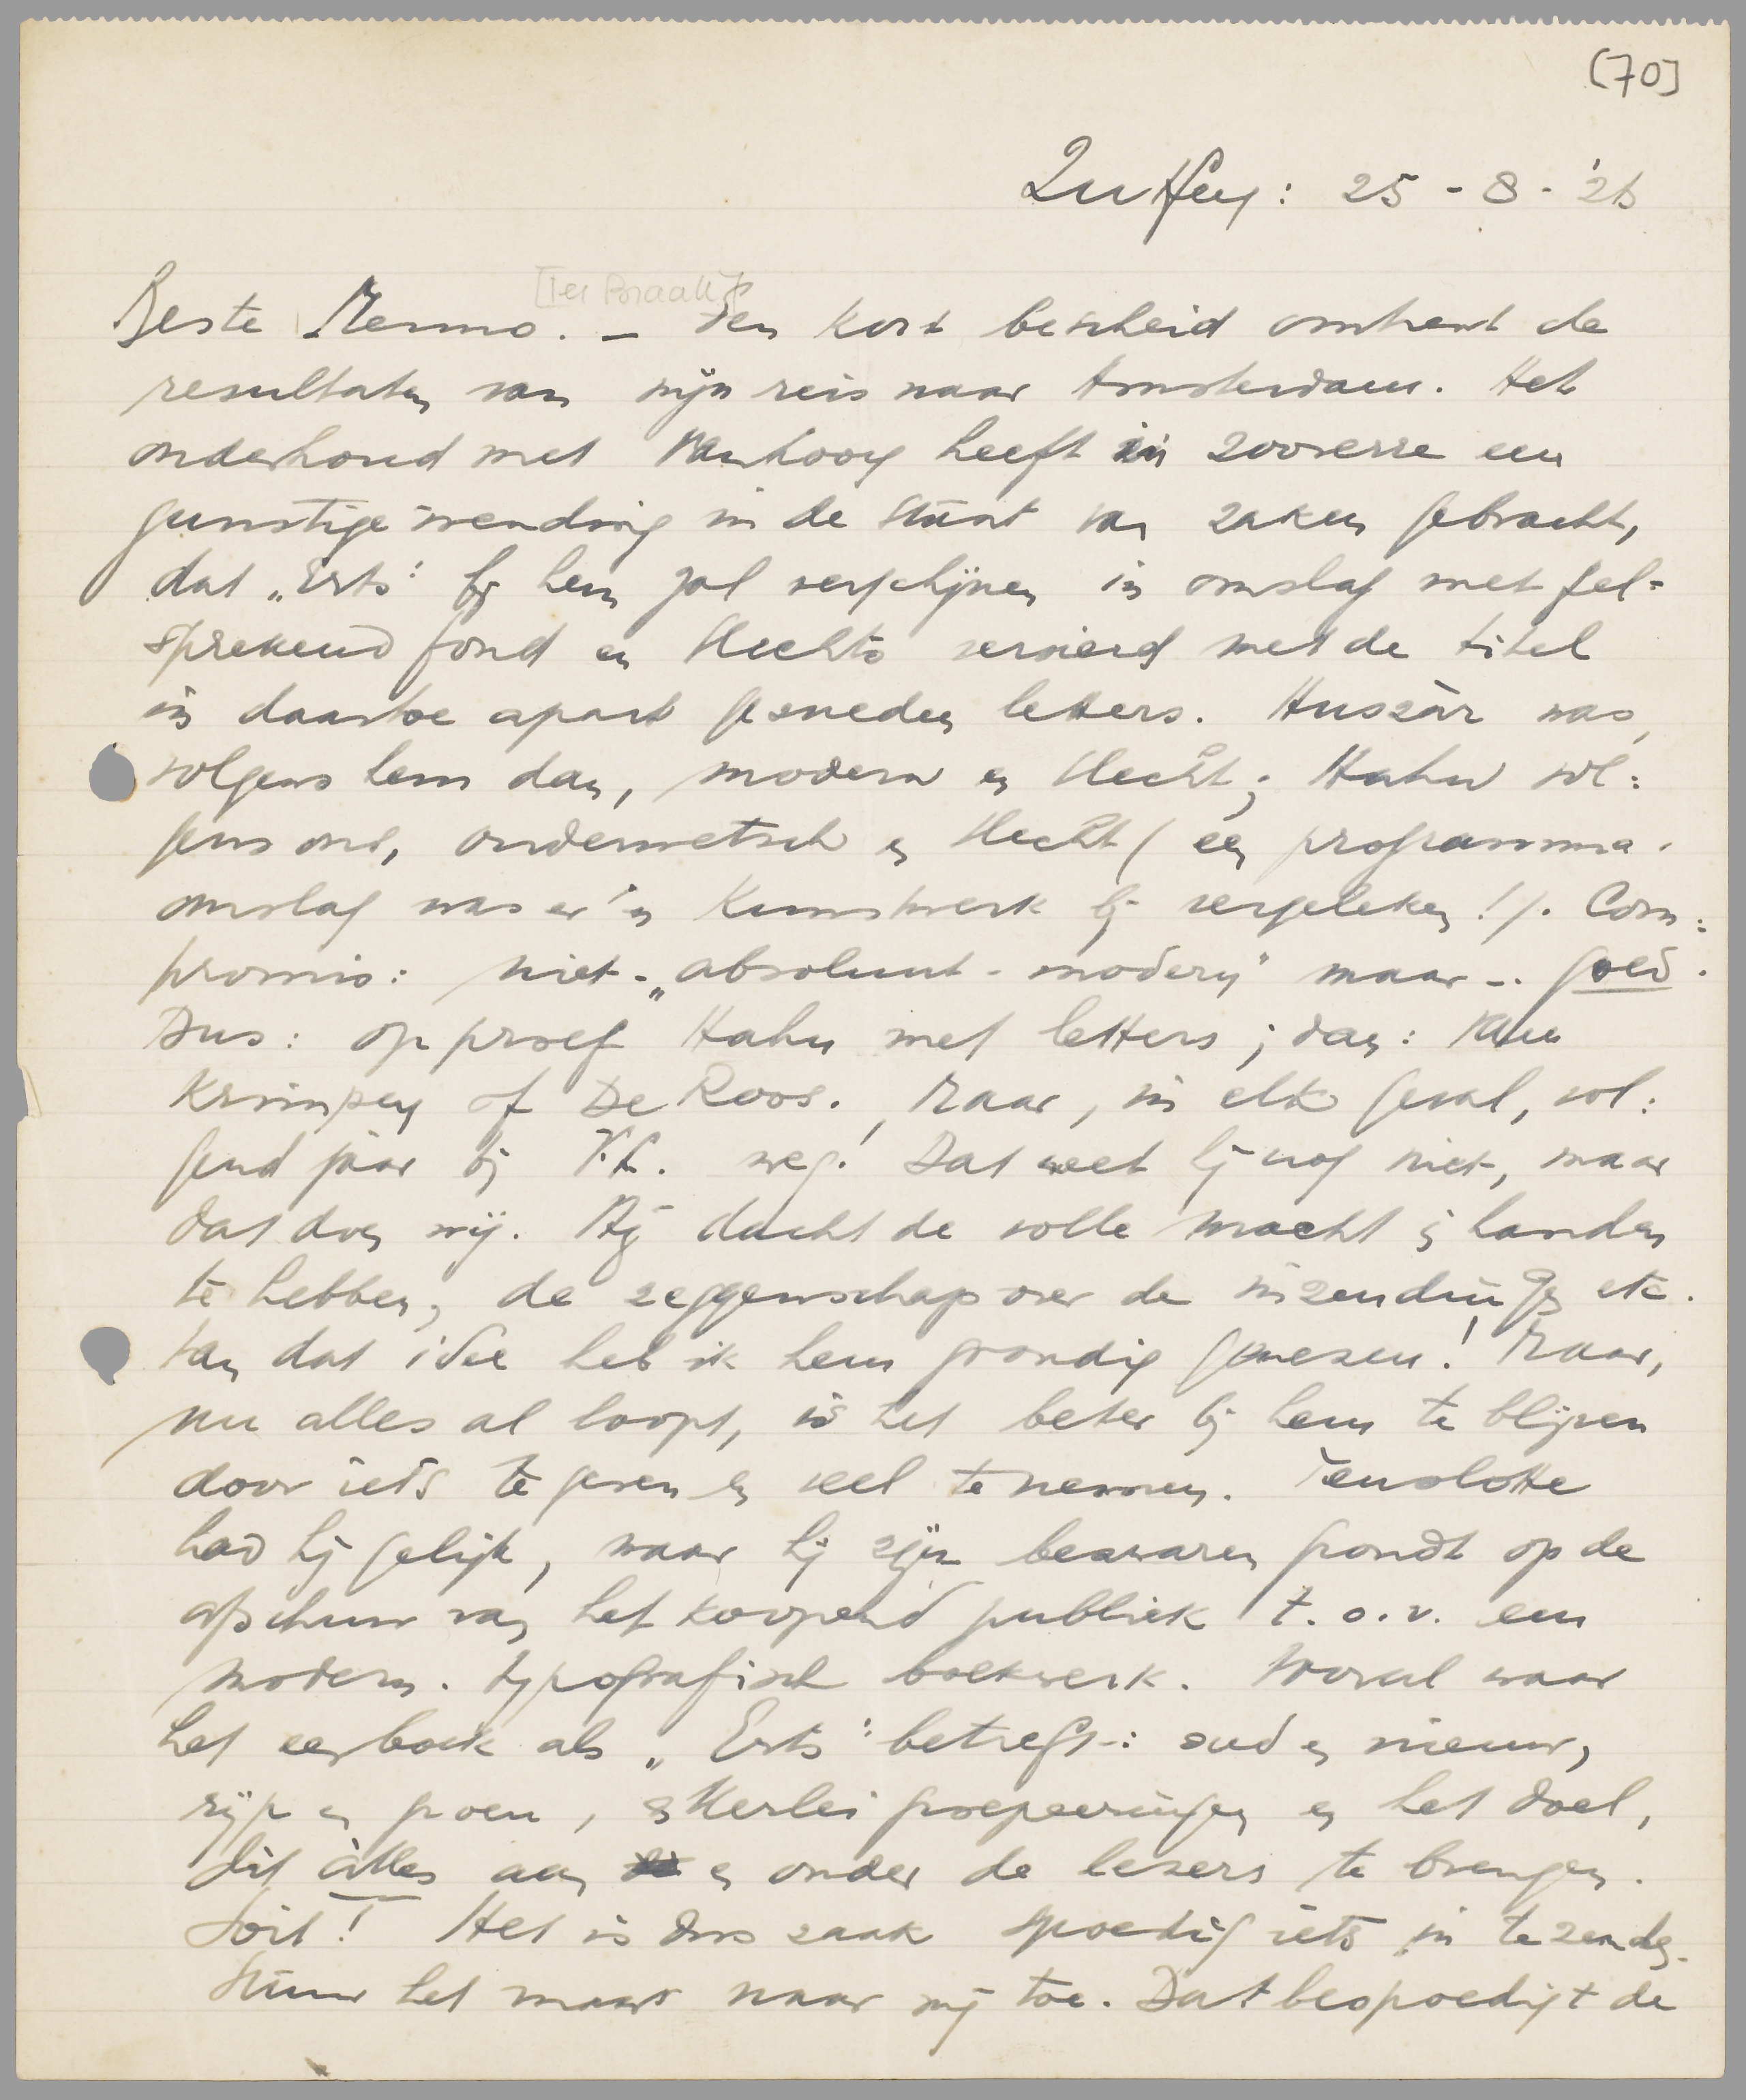 [70]
Zutfen: 25 - 8 - '26
[Ter Braak]
Beste Menno. – Een kort bescheid omtrent de
resultaten van mijn reis naar Amsterdam. Het
onderhoud met Van Looy heeft in zooverre een
gunstige wending in de stant van zaken gebracht,
dat „Erts" bij hem zal verschijnen in omslag met fel=
sprekend fond en slechts versierd met de titel
in daartoe apart gesneden letters. Huszàr was,
volgens hem dan, modern en slecht; Hahn vol=
gens ons, ouderwetsch en slecht (een programma-
omslag was er 'n kunstwerk bij vergeleken!). Com=
promis: niet-„absoluut-modern" maar -. goed.
Dus: op proef Hahn met letters; dan: Van
Krimpen of De Roos. Maar, in elk geval, vol=
gend jaar bij V.L. weg! Dat weet hij nog niet, maar
dat doen wij. Hij dacht de volle macht in handen
te hebben, de zeggenschap over de inzendingen etc.
Van dat idee heb ik hem grondig genezen! Maar,
nu alles al loopt, is het beter bij hem te blijven
door iets te geven en veel te nemen. Tenslotte
had hij gelijk, waar hij zijn bezwaren grondt op de
afschuw van het koopend publiek t.o.v. een
modern-typografisch boekwerk. Vooral waar
het een boek als „Erts" betreft-: oud en nieuw,
rijp en groen, allerlei groepeeringen en het doel,
dit àlles aan en onder de lezers te brengen.
Soit! Het is dus zaak spoedig iets in te zenden.
Stuur het maar naar mij toe. Dat bespoedigt de